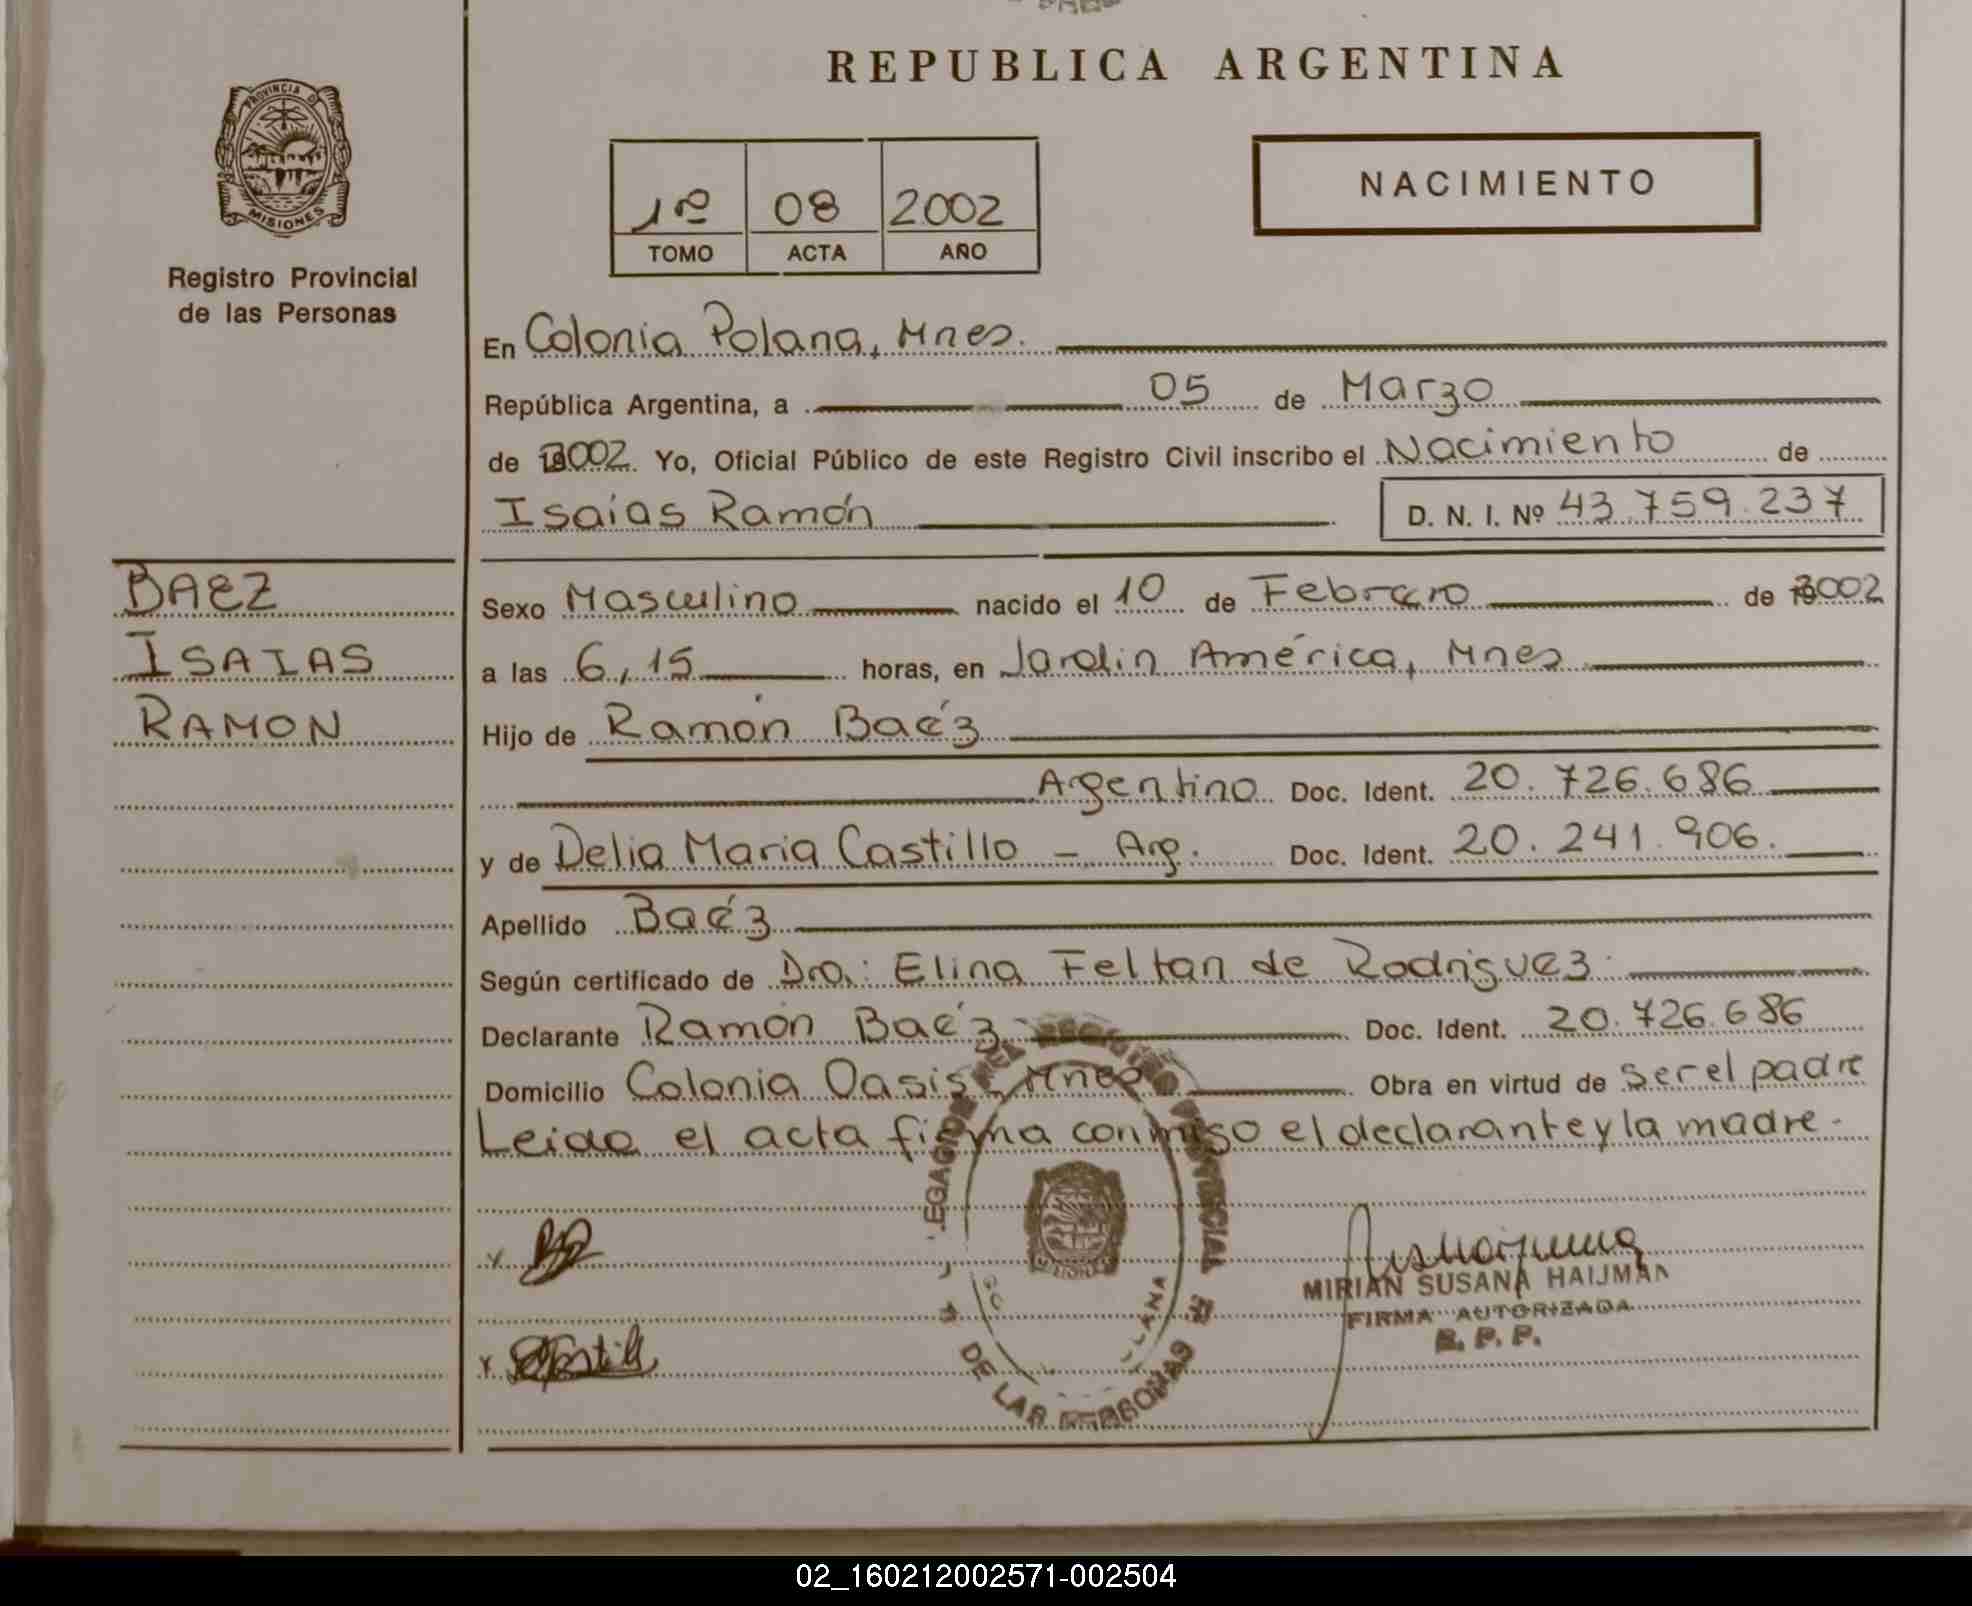 REPUBLICA ARGENTINA
PROVINCIA D
MISIONES
Registro Provincial
de las Personas
1º 08 2002
TOMO ACTA AÑO
NACIMIENTO
En Colonia Polana, Mnes.
República Argentina, a 05 de Marzo
de 2002. Yo, Oficial Público de este Registro Civil inscribo el Nacimiento de
Isaías Ramón D. N. I. Nº 43.759.237
BAEZ
ISAIAS
RAMON
Sexo Masculino nacido el 10 de Febrero de 2002
a las 6,15 horas, en Jardin América, Mnes
Hijo de Ramón Baéz
Argentino Doc. Ident. 20.726.686
y de Delia Maria Castillo - Arg. Doc. Ident. 20.241.906.
Apellido Baéz
Según certificado de Dra: Elina Feltan de Rodriguez
Declarante Ramón Baéz Doc. Ident. 20.726.686
Domicilio Colonia Oasis, Mnes Obra en virtud de ser el padre
Leida el acta firma conmigo el declarante y la madre.
MIRIAN SUSANA HAIJMAN
FIRMA AUTORIZADA
R. P. P.
DE LAS PERSONAS
MISIONES
02_160212002571-002504